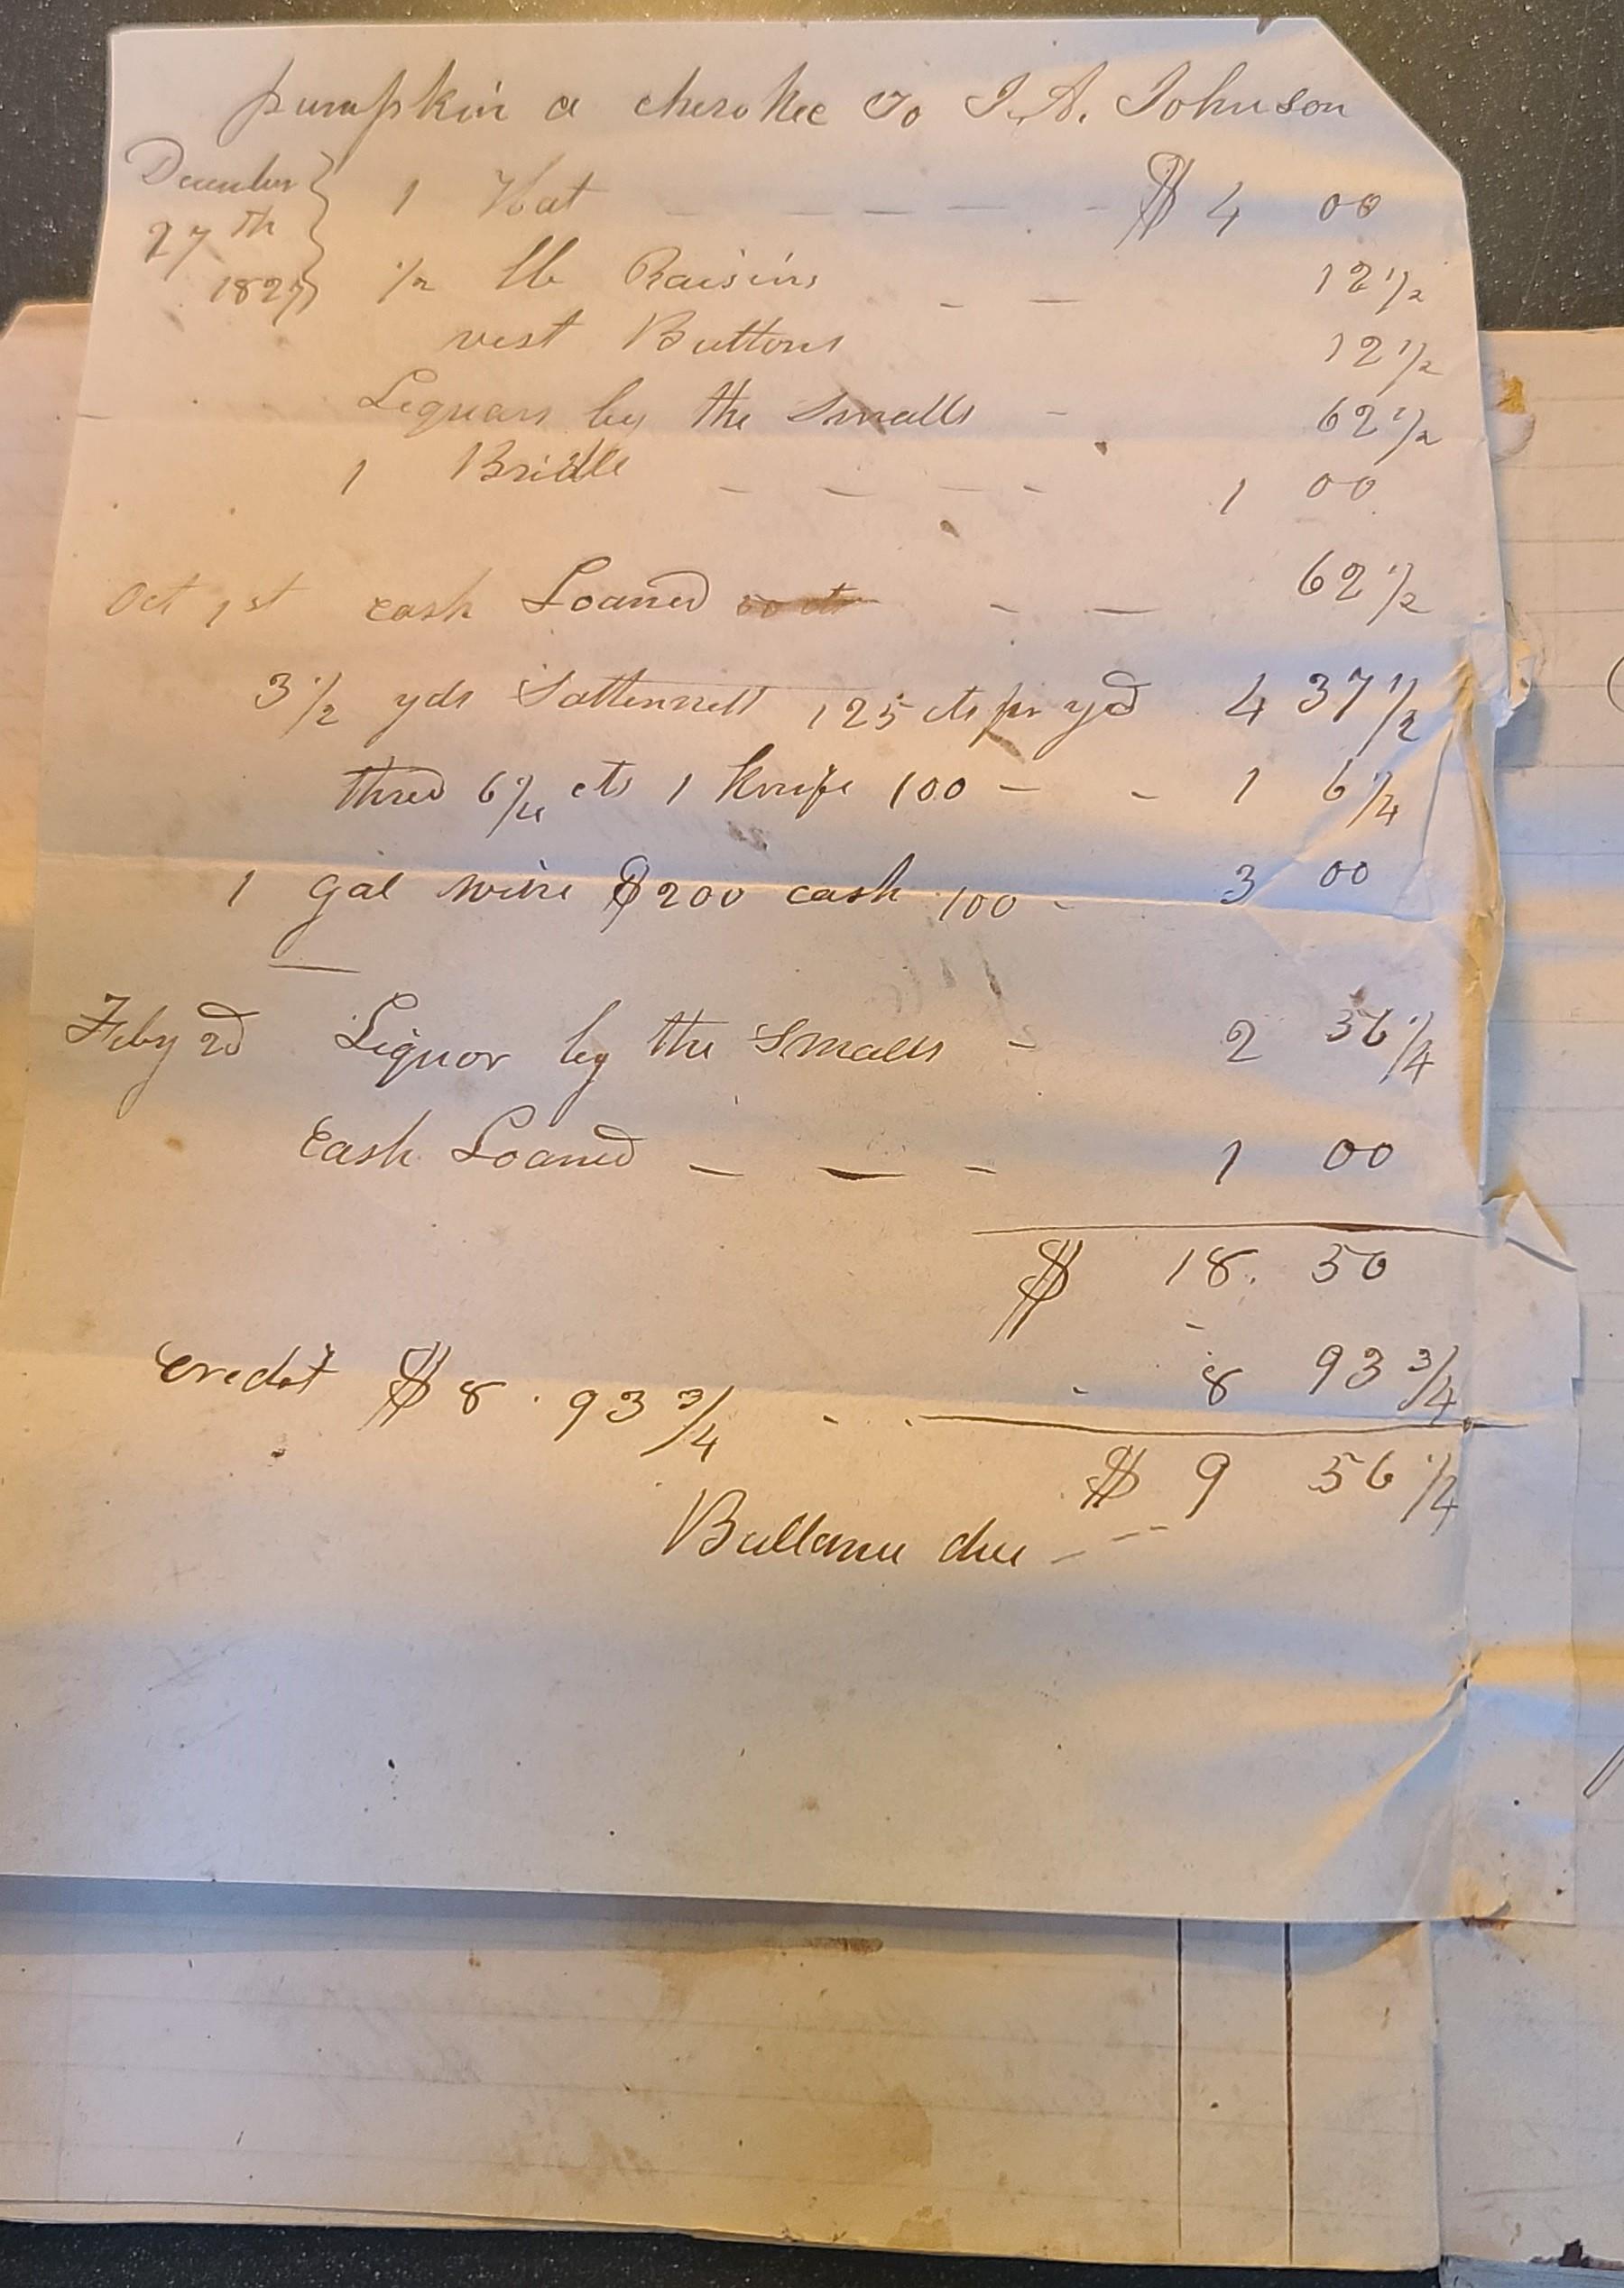 pumpkin a cherokee To J. A. Johnson
December 27th 1827 } 1 Hat - - - - - - $ 4 00
1/2 lb Raisins - - 12 1/2
vest Buttons 12 1/2
Liquors by the Smalls - 62 1/2
1 Bridle - - - - 1 00
Oct 1st cash Loaned - - 62 1/2
3 1/2 yds Sattennett 125 cts pr yd 4 37 1/2
thred 6 1/4 cts 1 knife 100 - - 1 6 1/4
1 gal wine $200 cash 100 - 3 00
Feby 2d Liquor by the Smalls - 2 56 1/4
Cash Loaned - - - 1 00
$ 18. 50
Credit $8.93 3/4 - - - 8 93 3/4
$ 9 56 1/4
Ballance due - -